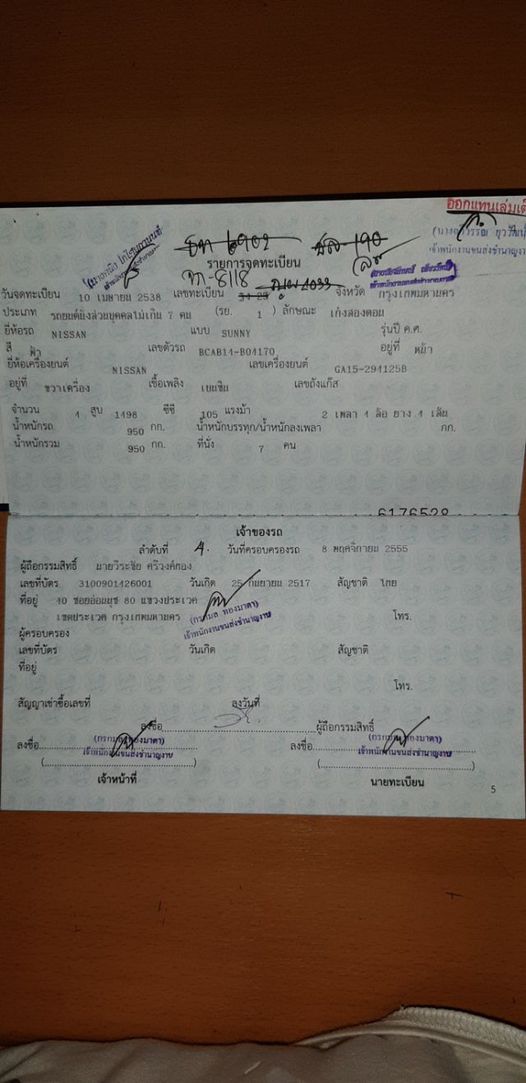 ออกแทนเล่มเดิ
รายการจดทะเบียน
ท-8118
วันจดทะเบียน 10 เมษายน 2538 เลขทะเบียน จังหวัด กรุงเทพมหานคร
ประเภท รถยนต์นั่งส่วนบุคคลไม่เกิน 7 คน (รย. 1 ) ลักษณะ เก๋งสองตอน
ยี่ห้อรถ NISSAN แบบ SUNNY รุ่นปี ค.ศ.
สี ฟ้า เลขตัวรถ BCAB14-B04170 อยู่ที่ หน้า
ยี่ห้อเครื่องยนต์ NISSAN เลขเครื่องยนต์ GA15-294125B
อยู่ที่ ขวาเครื่อง เชื้อเพลิง เบนซิน เลขถังแก๊ส
จำนวน 4 สูบ 1498 ซีซี 105 แรงม้า 2 เพลา 4 ล้อ ยาง 4 เส้น
น้ำหนักรถ 950 กก. น้ำหนักบรรทุก/น้ำหนักลงเพลา กก.
น้ำหนักรวม 950 กก. ที่นั่ง 7 คน
6176528
เจ้าของรถ
ลำดับที่ 4. วันที่ครอบครองรถ 8 พฤศจิกายน 2555
ผู้ถือกรรมสิทธิ์ นายวีระชัย ศรีวงค์ทอง
เลขที่บัตร 3100901426001 วันเกิด 25 กันยายน 2517 สัญชาติ ไทย
ที่อยู่ 40 ซอยอ่อนนุช 80 แขวงประเวศ
เขตประเวศ กรุงเทพมหานคร โทร.
(กรกมล ทองมาดา)
เจ้าพนักงานขนส่งชำนาญงาน
ผู้ครอบครอง
เลขที่บัตร วันเกิด สัญชาติ
ที่อยู่
โทร.
สัญญาเช่าซื้อเลขที่ ลงวันที่
ลงชื่อ ผู้ถือกรรมสิทธิ์
ลงชื่อ (กรกมล ทองมาดา) ลงชื่อ (กรกมล ทองมาดา)
เจ้าพนักงานขนส่งชำนาญงาน เจ้าพนักงานขนส่งชำนาญงาน
เจ้าหน้าที่ นายทะเบียน
5